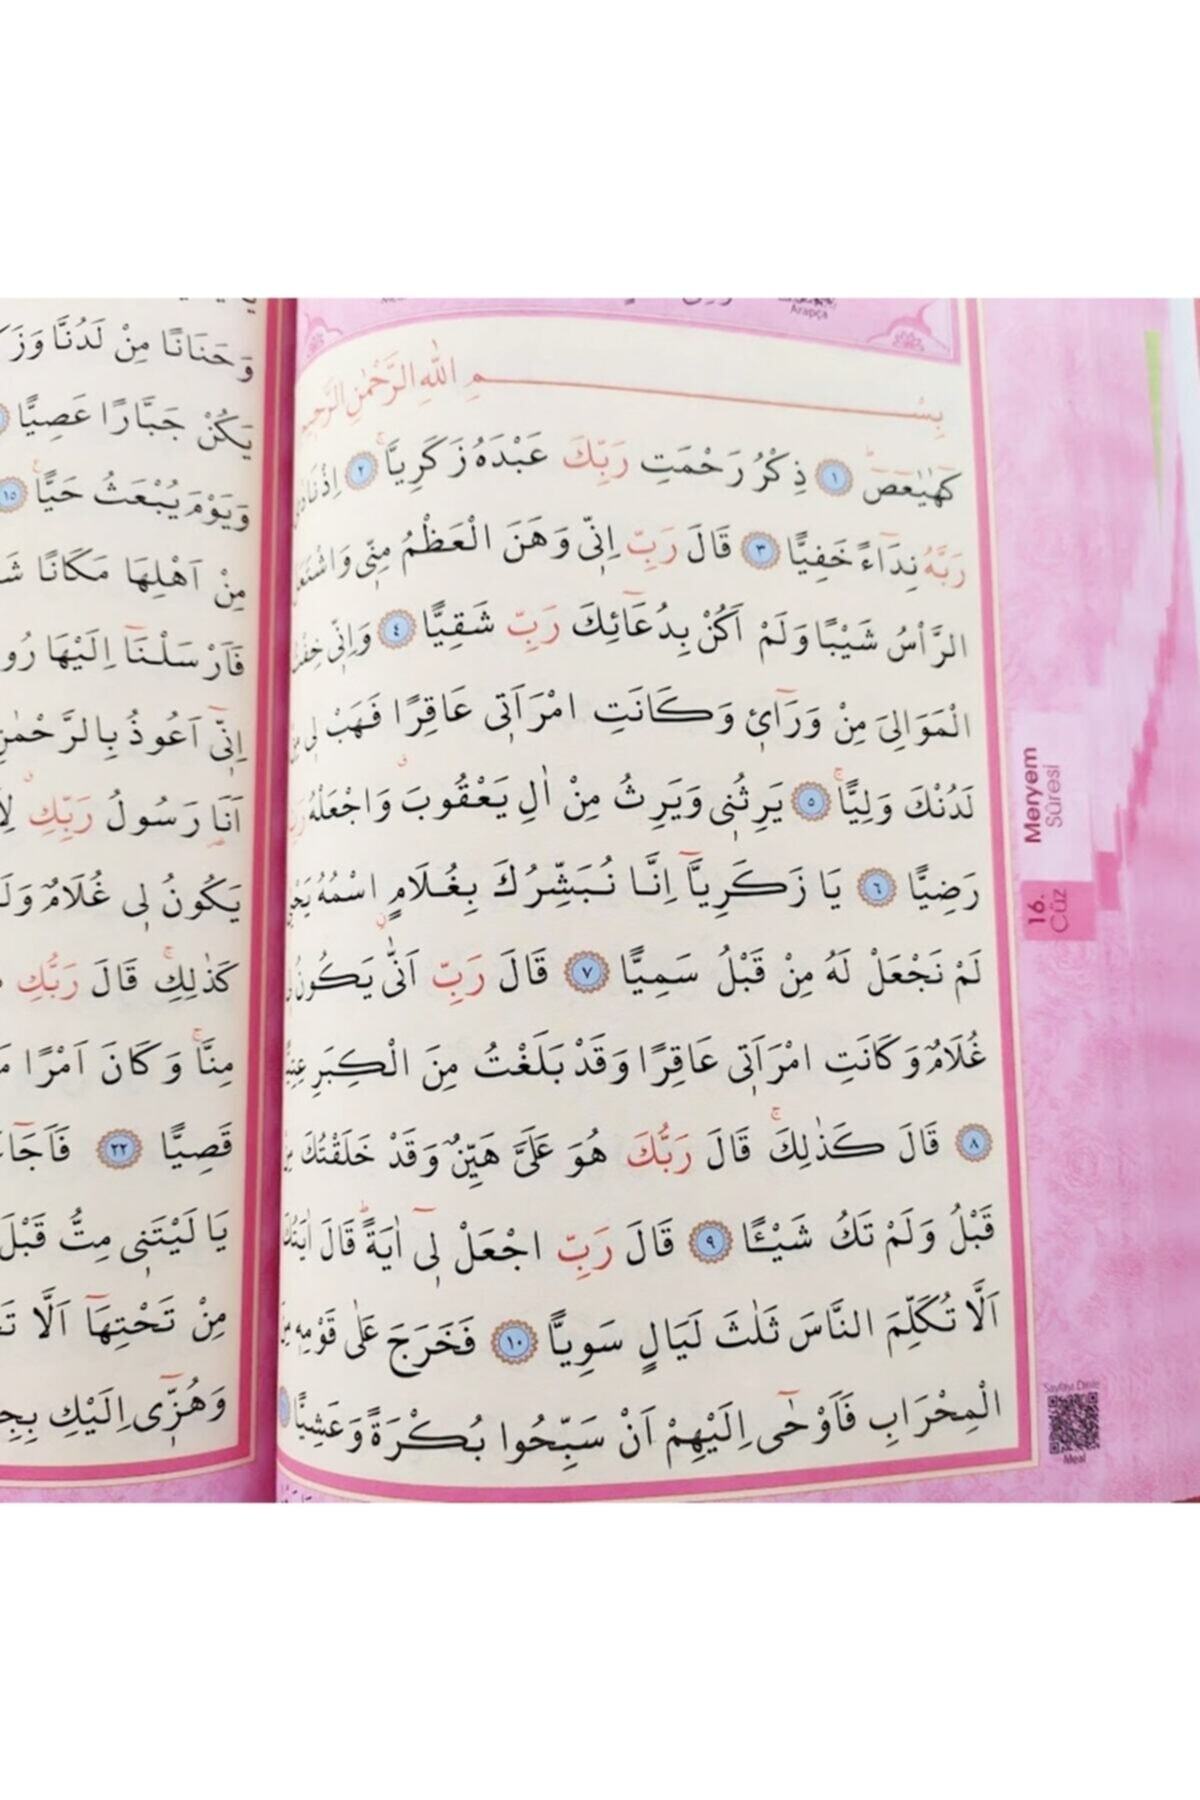 Arapça
بِسْمِ اللّٰهِ الرَّحْمٰنِ الرَّحِيمِ
كٓهٰيٰعٓصٓ ١ ذِكْرُ رَحْمَتِ رَبِّكَ عَبْدَهُ زَكَرِيَّا ٢ اِذْ نَادٰى
رَبَّهُ نِدَٓاءً خَفِيًّا ٣ قَالَ رَبِّ اِنّ۪ي وَهَنَ الْعَظْمُ مِنّ۪ي وَاشْتَعَلَ
الرَّأْسُ شَيْبًا وَلَمْ اَكُنْ بِدُعَٓائِكَ رَبِّ شَقِيًّا ٤ وَاِنّ۪ي خِفْتُ
الْمَوَالِيَ مِنْ وَرَٓاء۪ي وَكَانَتِ امْرَاَت۪ي عَاقِرًا فَهَبْ ل۪ي مِنْ
لَدُنْكَ وَلِيًّا ٥ يَرِثُن۪ي وَيَرِثُ مِنْ اٰلِ يَعْقُوبَ وَاجْعَلْهُ
رَضِيًّا ٦ يَا زَكَرِيَّٓا اِنَّا نُبَشِّرُكَ بِغُلَامٍ اسْمُهُ يَحْيٰى
لَمْ نَجْعَلْ لَهُ مِنْ قَبْلُ سَمِيًّا ٧ قَالَ رَبِّ اَنّٰى يَكُونُ
غُلَامٌ وَكَانَتِ امْرَاَت۪ي عَاقِرًا وَقَدْ بَلَغْتُ مِنَ الْكِبَرِ عِتِيًّا
٨ قَالَ كَذٰلِكَ قَالَ رَبُّكَ هُوَ عَلَيَّ هَيِّنٌ وَقَدْ خَلَقْتُكَ
قَبْلُ وَلَمْ تَكُ شَيْـًٔا ٩ قَالَ رَبِّ اجْعَلْ ل۪ٓي اٰيَةً قَالَ اٰيَتُكَ
اَلَّا تُكَلِّمَ النَّاسَ ثَلٰثَ لَيَالٍ سَوِيًّا ١٠ فَخَرَجَ عَلٰى قَوْمِه۪
الْمِحْرَابِ فَاَوْحٰٓى اِلَيْهِمْ اَنْ سَبِّحُوا بُكْرَةً وَعَشِيًّا
Meryem
Sûresi
16.
Cüz
Sayfayı Dinle
Meal
وَحَنَانًا مِنْ لَدُنَّا
يَكُنْ جَبَّارًا عَصِيًّا
وَيَوْمَ يُبْعَثُ حَيًّا ١٥
مِنْ اَهْلِهَا مَكَانًا
فَاَرْسَلْنَٓا اِلَيْهَا
اِنّ۪ٓي اَعُوذُ بِالرَّحْمٰنِ
اَنَا۬ رَسُولُ رَبِّكِ
يَكُونُ ل۪ي غُلَامٌ
كَذٰلِكِ قَالَ رَبُّكِ
مِنَّا وَكَانَ اَمْرًا
قَصِيًّا ٢٢
يَا لَيْتَن۪ي مِتُّ قَبْلَ
مِنْ تَحْتِهَٓا اَلَّا
وَهُزّ۪ٓي اِلَيْكِ